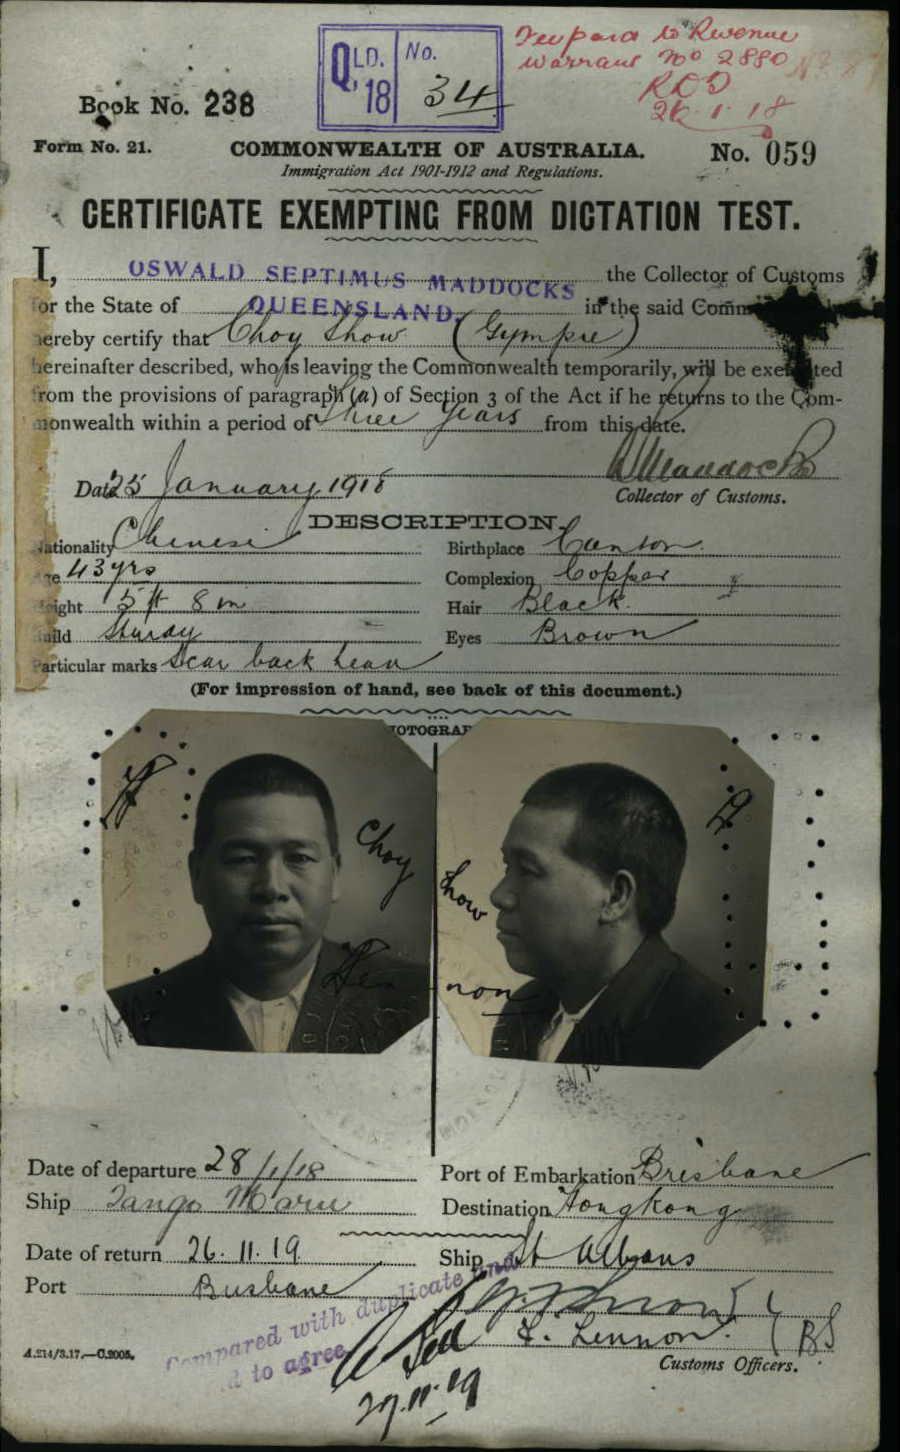 QLD. 18 No. 34
to Revenue
No 2880
26.1.18
Book No. 238
Form No. 21.
COMMONWEALTH OF AUSTRALIA.
No. 059
Immigration Act 1901-1912 and Regulations.
CERTIFICATE EXEMPTING FROM DICTATION TEST.
I, OSWALD SEPTIMUS MADDOCKS the Collector of Customs
for the State of QUEENSLAND. in the said
hereby certify that Choy Show (Gympie)
hereinafter described, who is leaving the Commonwealth temporarily, will be
from the provisions of paragraph (a) of Section 3 of the Act if he returns to the Com-
monwealth within a period of Three Years from this date.
Maddocks
Date 25 January 1918
Collector of Customs.
DESCRIPTION.
Nationality Chinese Birthplace Canton.
Age 43 yrs Complexion Copper
Height 5 ft 8 in Hair Black.
Build Sturdy Eyes Brown
Particular marks Scar back head
(For impression of hand, see back of this document.)
Choy Show
Date of departure 28/1/18 Port of Embarkation Brisbane
Ship Tango Maru Destination Hongkong
Date of return 26.11.19 Ship St Albans
Port Brisbane
Compared with duplicate and
to agree
Lennon.
Customs Officers.
A.214/3.17.—C.2005.
27.11.19